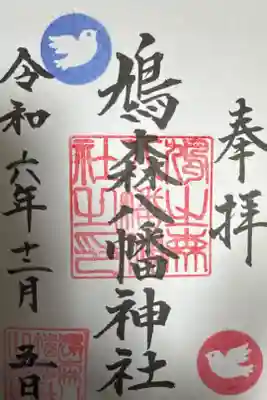 奉拝
鳩森八幡神社
令和六年十二月五日